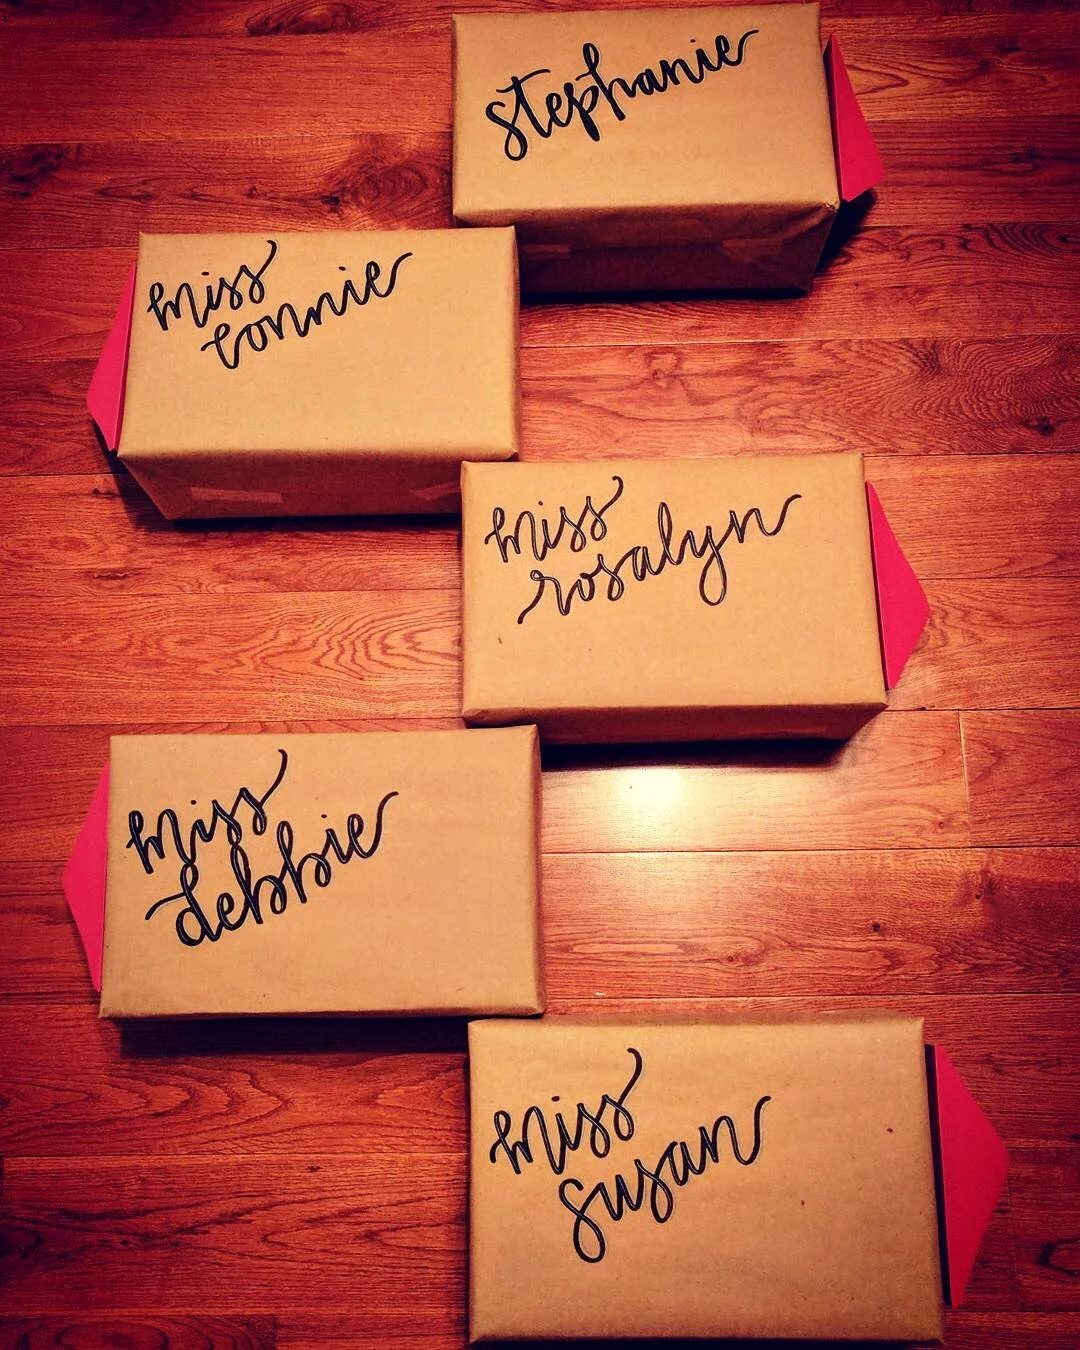 stephanie
miss
connie
miss
rosalyn
miss
debbie
miss
susan